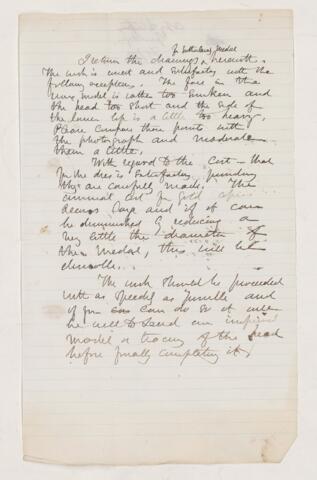 for Sutherland Medal
I return the drawings herewith.
The work is correct and satisfactory with the
following exceptions. The face in the
wax model is rather too sunken and
the head too short and the side of
the lower lip is a little too heavy.
Please compare these points with
the photograph and moderate
them a little.
With regard to the cost – that
for the dies is satisfactory, providing
they are carefully made. The
annual cost in Gold
seems large and if it can
be diminished by reducing a
very little the diameter of
the Medal, this will be
desirable.
The work should be proceeded
with as speedily as possible and
if you can do so it will
be well to send an improved
model or tracing of the head
before finally completing it.